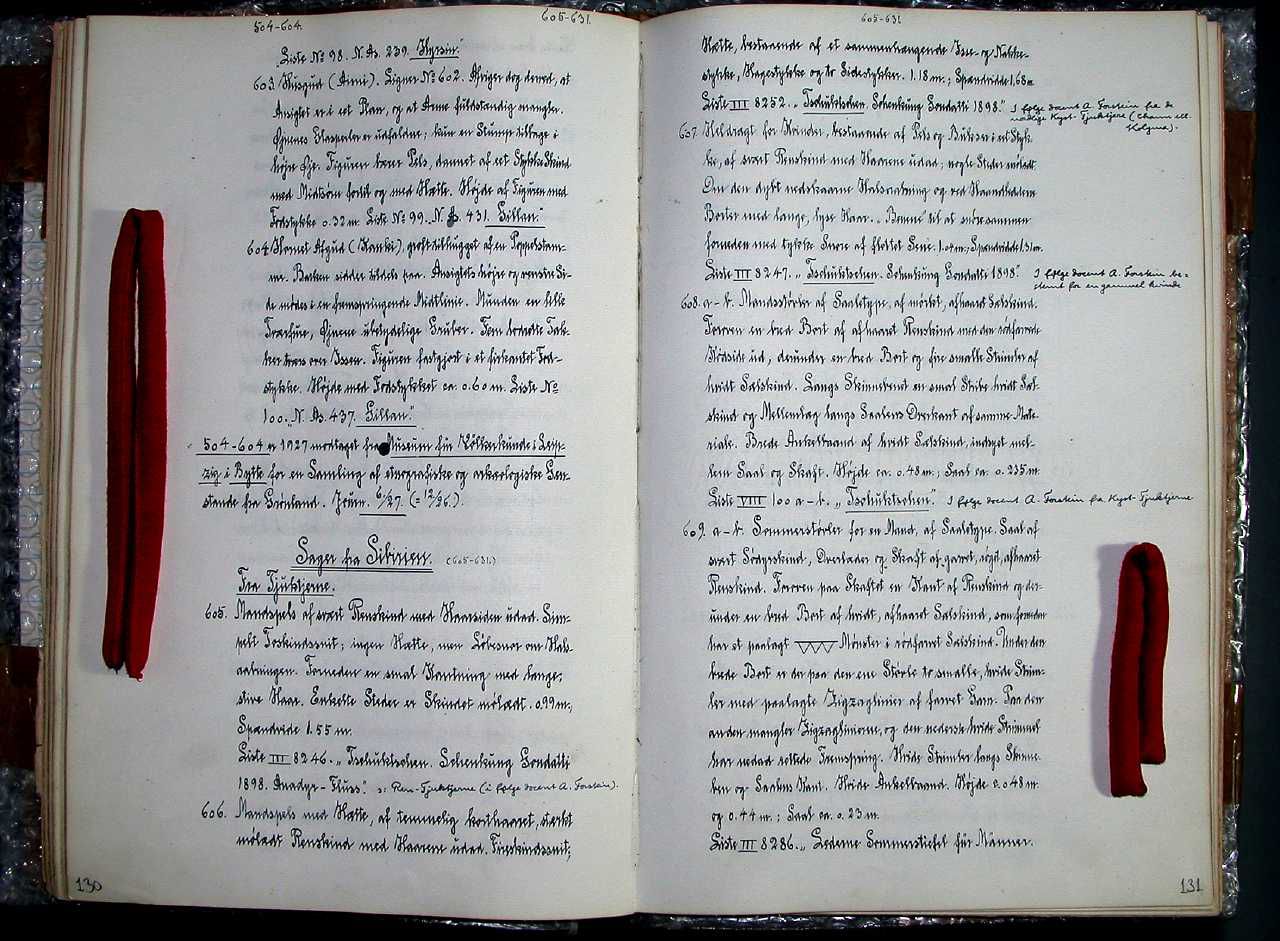 504-604.
605-631.
Liste № 98. N. As. 239.
603. Husgud (Ammi). Ligner № 602. Afviger dog derved, at
Ansigtet er i eet Plan, og at Arme fuldstændig mangler.
Øjnenes Glasperler er udfaldne; kun en Stump tilbage i
højre Øje. Figuren bærer Pels, dannet af eet Stykke Skind
med Midtsøm fortil og med Hætte. Højde af Figuren med
Fodstykke 0.32 m. Liste № 99. "N. As. 431. Gillan."
604. Hornet Afgud (Kamki), groft tilhugget af en Poppelstam-
me. Barken sidder tildels paa. Ansigtets højre og venstre Si-
de mødes i en fremspringende Midtlinie. Munden en lille
Tværfure, Øjnene ubetydelige Gruber. Fem brændte Tak-
ker tværs over Issen. Figuren fastgjort i et firkantet Fod-
stykke. Højde med Fodstykket ca. 0.60 m. Liste №
100. "N. As. 437. Gillan."
504-604 er 1927 modtaget fra Museum für Völkerkunde i Leip-
zig i Bytte for en Samling af etnografiske og arkæologiske Gen-
stande fra Grønland. Jrnr. 6/27. (= 12/26.).
Sager fra Sibirien. (605-631.)
Fra Tjuktjerne.
605. Mandspels af svært Renskind med Haarsiden udad. Sim-
pelt Toskindssnit; ingen Hætte, men Løbesnor om Hals-
aabningen. Forneden en smal Kantning med lange,
stive Haar. Enkelte Steder er Skindet mølædt. 0.99 m.;
Spændvide 1.55 m.
Liste III 8246. "Tschuktschen. Schenkung Gondatti
1898. Anadyr-Fluss." ɔ: Ren-Tjuktjerne (i følge docent A. Forstein).
606. Mandspels med Hætte, af temmelig korthaaret, stærkt
mølædt Renskind med Haarene udad. Fireskindssnit;
130
605-631
Hætte, bestaaende af et sammenhængende Isse- og Nakke-
stykke, Hagestykke og to Sidestykker. 1.18 m.; Spændvidde 1,68 m
Liste III 8252. "Tschuktschen. Schenkung Gondatti 1898." I følge docent A. Forstein fra de
nordlige Kyst-Tjuktjere (Chaun ell.
Kolyma).
607. Heldragt for Kvinder, bestaaende af Pels og Bukser i eet Styk-
ke, af svært Renskind med Haarene udad; nogle Steder mølædt.
Om den dybt nedskaarne Halsaabning og ved Haandledene
Borter med lange, lyse Haar. "Bænne" til at snøre sammen
forneden med tykke Snore af flettet Sene. 1.04 m.; Spændvidde 1.31 m.
Liste III 8247. "Tschuktschen. Schenkung Gondatti 1898." I følge docent A. Forstein be-
stemt for en gammel kvinde
608. a-b. Mandsstøvler af Saaletype, af mørkt, afhaaret Sælskind.
Foroven en bred Bort af afhaaret Renskind med den rødfarvede
Kødside ud, derunder en bred Bort og fire smalle Strimler af
hvidt Sælskind. Langs Skinnebenet en smal Stribe hvidt Sæl-
skind og Mellemlæg langs Saalens Overkant af samme Mate-
riale. Brede Ankelbaand af hvidt Sælskind, indsyet mel-
lem Saal og Skaft. Højde ca. 0.48 m.; Saal ca. 0.235 m.
Liste VIII 100 a-b. "Tschuktschen." I følge docent A. Forstein fra Kyst-Tjuktjerne
609. a-b. Sommerstøvler for en Mand, af Saaletype. Saal af
svært Sødyrskind, Overlæder og Skaft af garvet, røget, afhaaret
Renskind. Foroven paa Skaftet en Kant af Renskind og der-
under en bred Bort af hvidt, afhaaret Sælskind, som forneden
har et paalagt Mønster i rødfarvet Sælskind. Under den
brede Bort er der paa den ene Støvle to smalle, hvide Strim-
ler med paalagte Zigzaglinier af farvet Garn. Paa den
anden mangler Zigzaglinierne, og den nederste hvide Strimmel
har nedad rettede Fremspring. Hvide Strimler langs Skinne-
ben og Saalens Kant. Hvide Ankelbaand. Højde c. 0.48 m
og 0.44 m.; Saal ca. 0.23 m.
Liste III 8286. "Lederne Sommerstiefel für Männer.
131